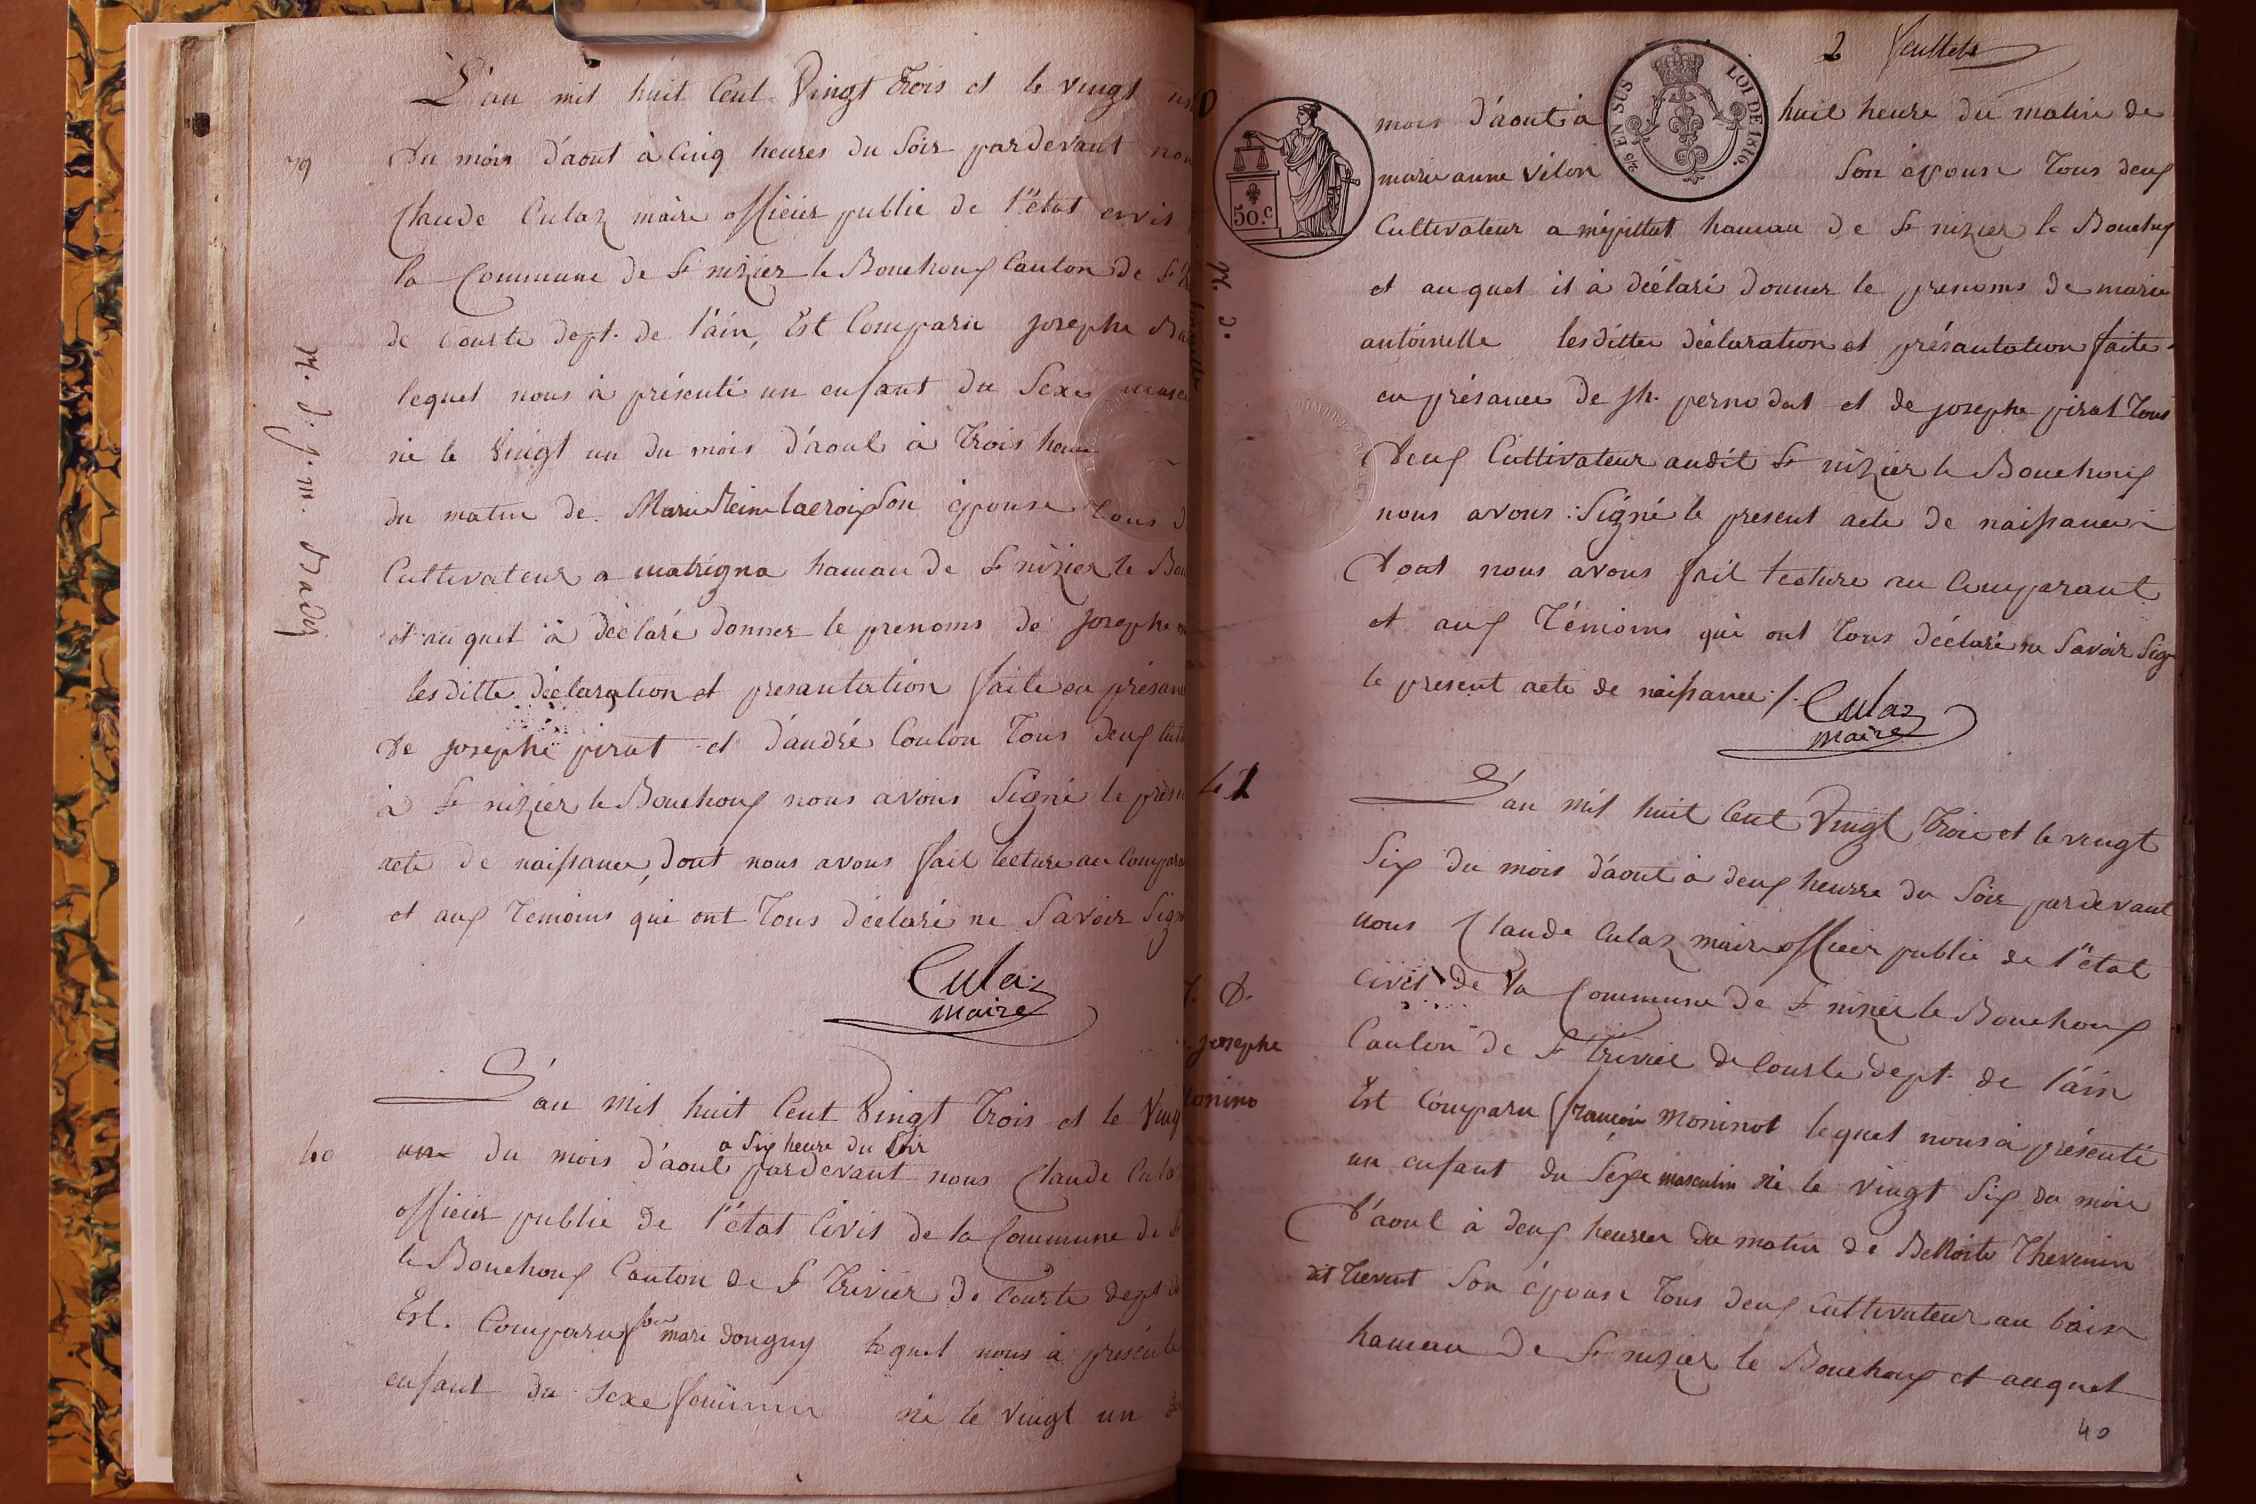 L'an mil huit Cent Vingt trois et le vingt un
39
du mois d'aout à Cinq heures du Soir pardevant nou
Claude Culaz maire officier public de l'état civil
la Commune de St nizier le Bouchoux Canton de St
de Courte dept. de l'ain, Est Comparu josephe
lequel nous à présenté un enfant du Sexe mascu
né le Vingt un du mois d'aout à trois heure
du matin de Marie Reine lacroix Son épouse tous d
Cultivateur a matrigna hamau de St nizier le Bou
et au quel à déclaré donner le prenoms de josephe
lesditte déclaration et présantation faite en présan
de josephe pirat et d'andré Coulon tous deux
à St nizier le Bouchoux nous avons Signé le prés
acte de naissance, dont nous avons fait lecture au Compara
et aux témoins qui ont tous déclaré ne Savoir Sign
Culaz
maire
L'an mil huit Cent Vingt trois et le Ving
a Six heure du Soir
40
un du mois d'aout pardevant nous Claude Cula
officier public de l'état Civil de la Commune de St
le Bouchoux Canton de St trivier de Courte dept
Est. Comparu mari dongny lequel nous à présenté
enfant du Sexe féminin né le vingt un
2 feuillets
50.C
2/5 EN SUS
LOI DE 1816.
mois d'aout à huit heure du matin de
marie anne vélon Son épouse tous deux
Cultivateur a mépillat hamau de St nizier le Bouchoux
et au quel il à déclaré donner le prenoms de marie
antoinette lesditte déclaration et présantation faite
en présance de jh. pernodat et de josephe pirat tous
deux Cultivateur audit St nizier le Bouchoux
nous avons Signé le present acte de naissance
dont nous avons fait lecture au Comparant
et aux témoins qui ont tous déclaré ne Savoir Sig
le present acte de naissance ./.
Culaz
maire
41
L'an mil huit Cent Vingt trois et le vingt
Six du mois d'aout à deux heurre du Soir pardevant
nous Claude Culaz maire officier public de l'état
Civil de la Commune de St nizier le Bouchoux
josephe
Canton de St trivier de Courte dept. de l'ain
Est Comparu françoi Moninot lequel nous à présenté
un enfant du Sexe masculin né le vingt Six du mois
d'aout à deux heurrer du matin de Benoite Thevenin
dit trevent Son épouse tous deux Cultivateur au bain
hameau de St nizier le Bouchoux et auquel
40